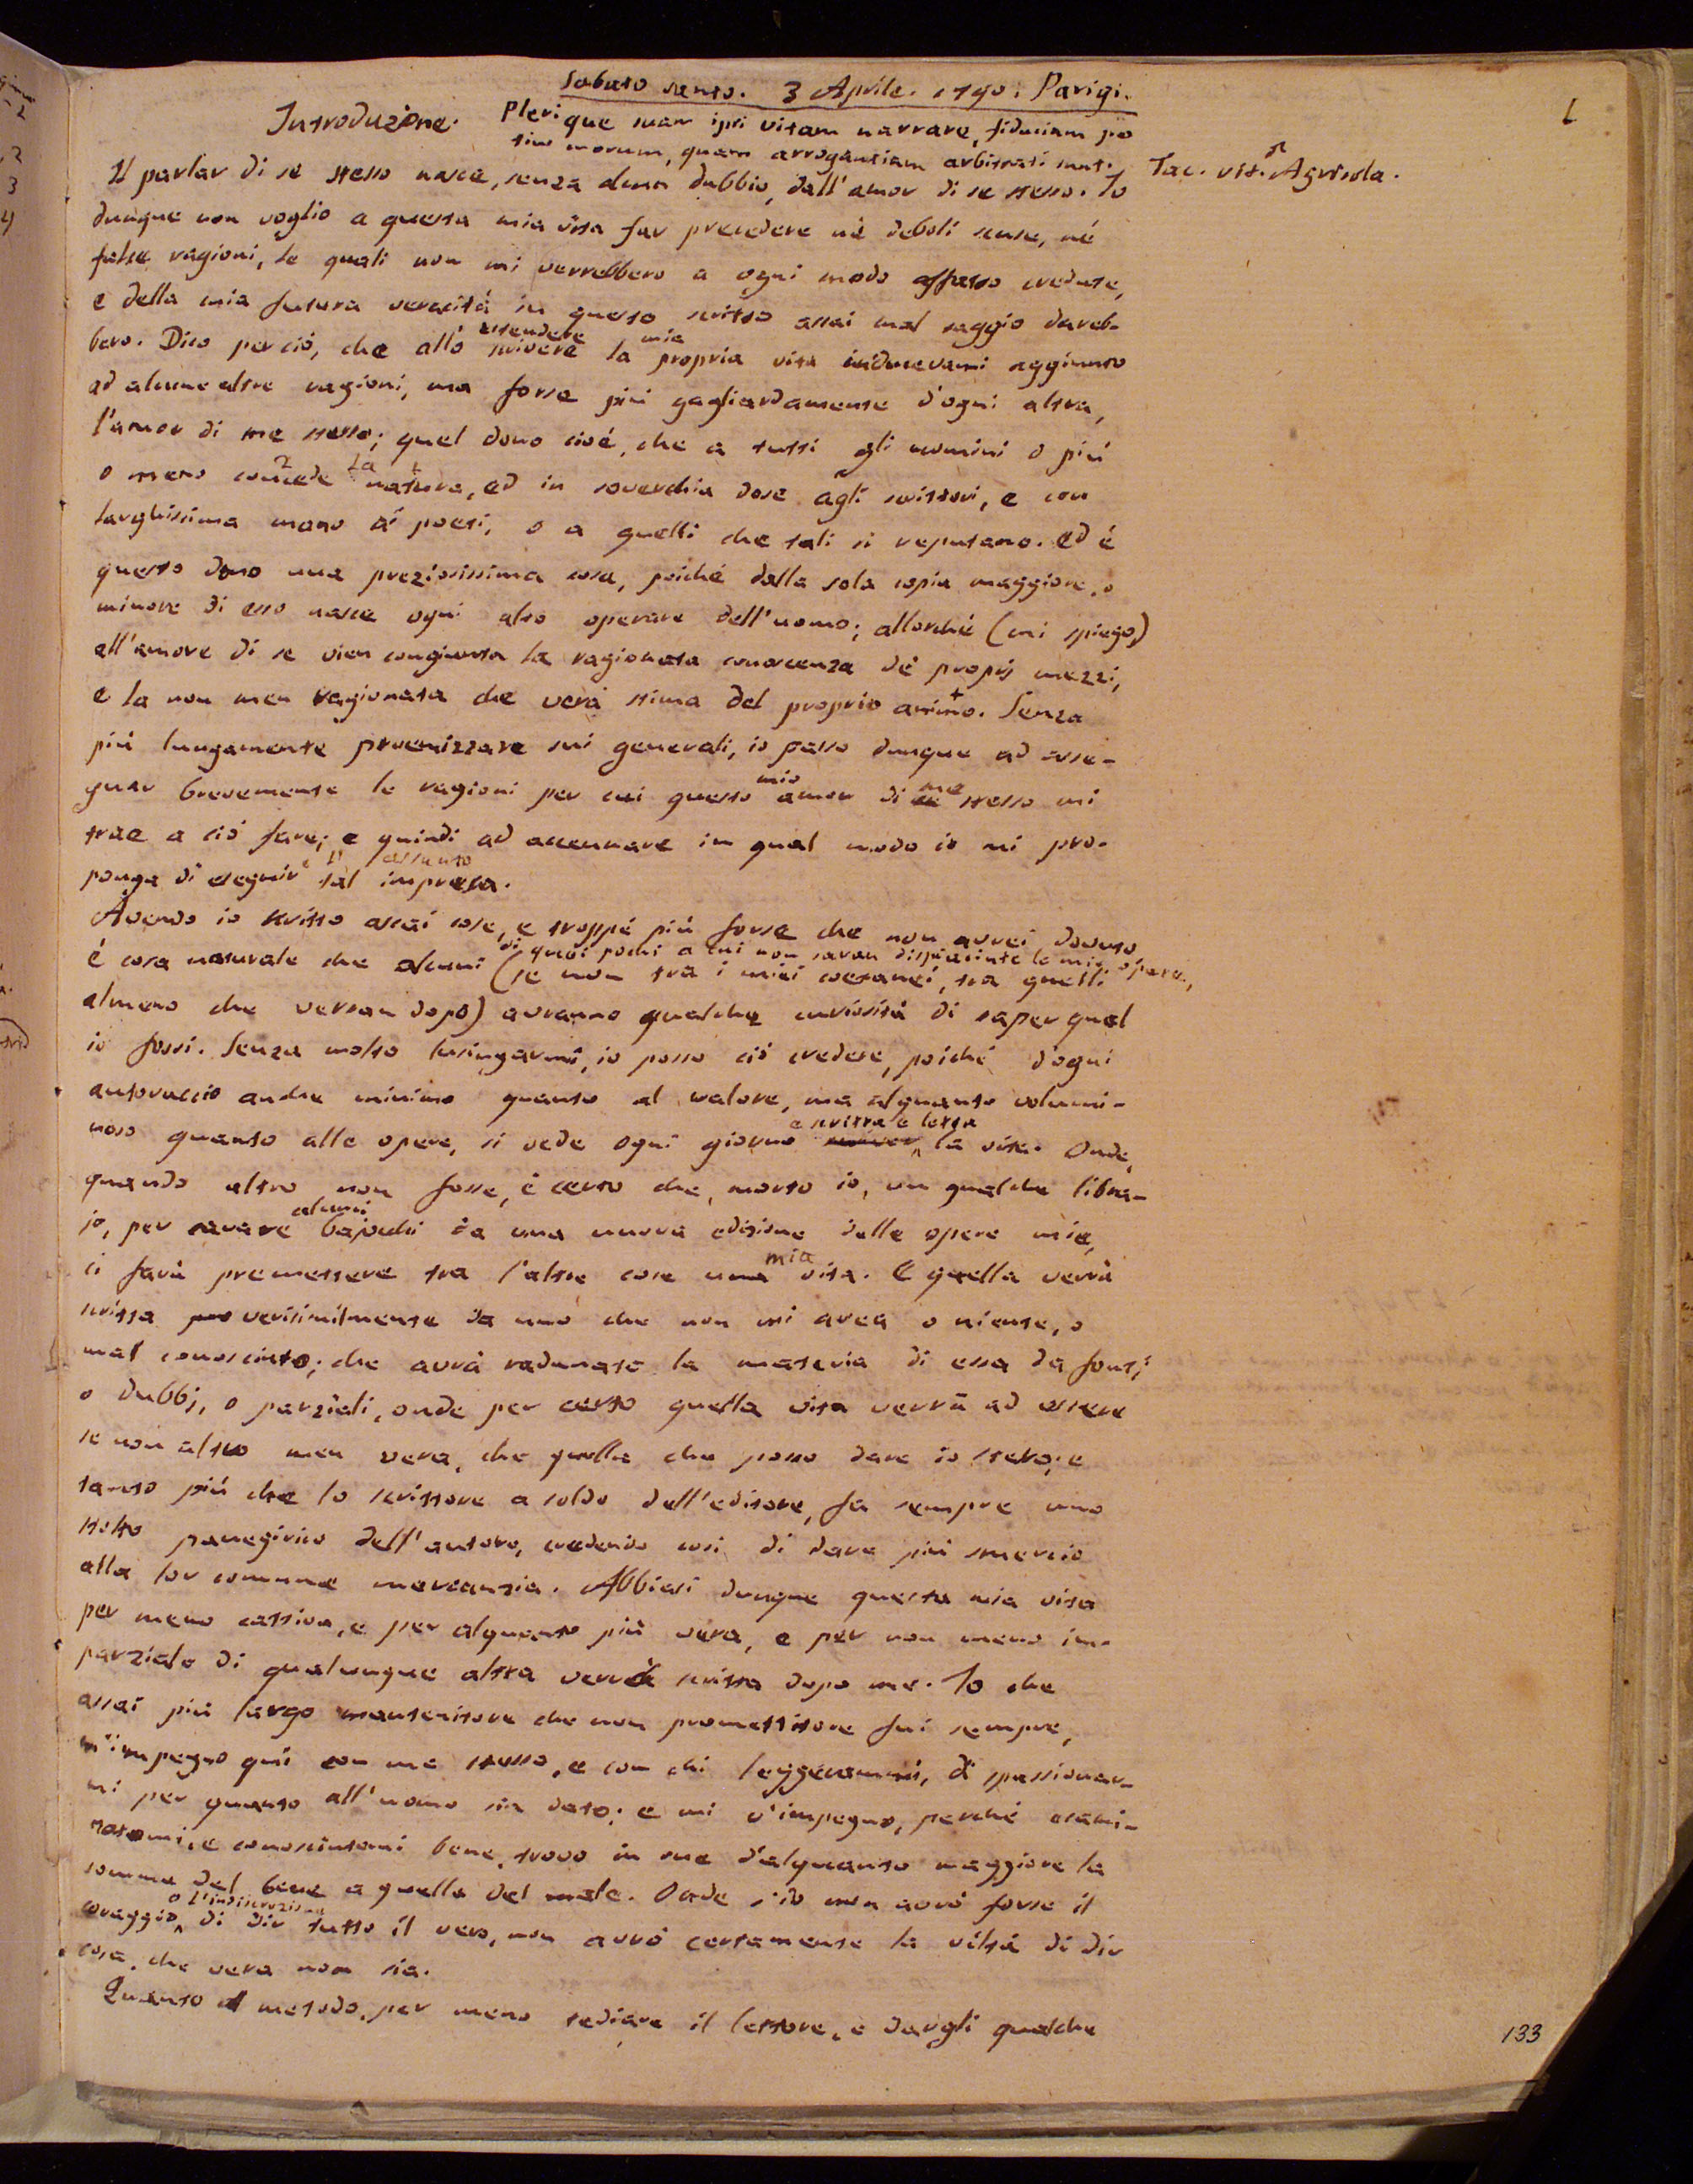 Sabato santo. 3 Aprile. 1790. Parigi.
1
Introduzione.
Plerique suam ipsi vitam narrare, fiduciam po
tius morum, quam arrogantiam arbitrati sunt.
Tac. vit. Agricola.
Il parlar di se stesso nasce, senza alcun dubbio, dall'amor di se stesso. Io
dunque non voglio a questa mia vita far precedere nè deboli scuse, nè
false ragioni, le quali non mi verrebbero a ogni modo affatto credute,
e della mia futura veracità in questo scritto assai mal saggio dareb-
bero. Dico perciò, che allo scrivere la propria vita inducevami aggiunto
estendere mia
ad alcune altre ragioni, ma forse più gagliardamente d'ogni altra,
l'amor di me stesso; quel dono cioè, che a tutti gli uomini o più
o meno concede la natura, ed in soverchia dose agli scrittori, e con
2 1
larghissima mano ai poeti, o a quelli che tali si reputano. Ed è
questo dono una preziosissima cosa, poichè dalla sola copia maggiore, o
minore di esso nasce ogni alto operare dell'uomo; allorchè (mi spiego)
all'amore di se vien congiunta la ragionata conoscenza de' proprj mezzi,
e la non men ragionata che vera stima del proprio animo. Senza
+
più lungamente proemizzare sui generali, io passo dunque ad asse-
gnar brevemente le ragioni per cui questo amor di se stesso mi
mio me
trae a ciò fare; e quindi ad accennare in qual modo io mi pro-
ponga di eseguir tal impresa.
assunto
Avendo io scritto assai cose, e troppe più forse che non avrei dovuto,
è cosa naturale che alcuni (se non tra i miei coetanei, tra quelli
di quei pochi a cui non saran dispiaciute le mie opere,
almeno che verran dopo) avranno qualche curiosità di saper qual
io fossi. Senza molto lusingarmi, io posso ciò credere, poichè d'ogni
autoruccio anche minimo quanto al valore, ma alquanto volumi-
noso quanto alle opere, si vede ogni giorno la vita. Onde,
e scritta e letta
quando altro non fosse, è certo che, morto io, un qualche libra-
jo, per cavare bajocchi da una nuova edizione delle opere mie,
alcuni
ci farà premettere tra l'altre cose una vita. E quella verrà
mia
scritta verisimilmente da uno che non mi avea o niente, o
mal conosciuto; che avrà radunate la materia di essa da fonti
o dubbj, o parziali, onde per certo quella vita verrà ad essere
se non altro men vera, che quella che posso dare io stesso; e
tanto più che lo scrittore a soldo dell'editore, fa sempre uno
stolto panegirico dell'autore, credendo così di dare più smercio
alla lor comune mercanzia. Abbiasi dunque questa mia vita
per meno cattiva, e per alquanto più vera, e per non meno im-
parziale di qualunque altra verrà scritta dopo me. Io che
assai più largo mantenitore che non promettitore fui sempre,
m'impegno quì con me stesso, e con chi leggerammi, di spassionar-
mi per quanto all'uomo sia dato; e mi v'impegno, perchè esami-
natomi, e conosciutomi bene, trovo in me d'alquanto maggiore la
somma del bene a quella del male. Onde s'io non avrò forse il
coraggio di dir tutto il vero, non avrò certamente la viltà di dir
o l'indiscrezione
cosa, che vera non sia.
Quanto al metodo, per meno tediare il lettore, e dargli qualche
133